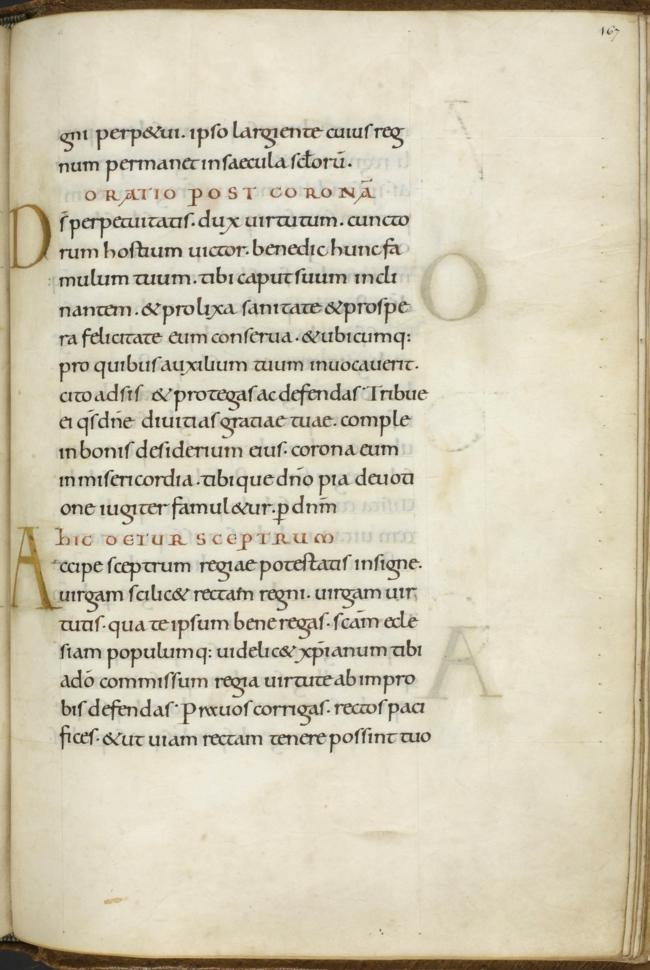 167
gni perp&ui. ipso largiente cuius reg
num permanet in saecula sclorū.
ORATIO POST CORONĀ
Ds perpetuitatis. dux uirtutum. cuncto
rum hostium uictor. benedic hunc fa
mulum tuum. tibi caput suum incli
nantem. & prolixa sanitate & prospe
ra felicitate eum conserua. & ubicumq:
pro quibus auxilium tuum inuocauerit.
cito adsis & protegas ac defendas. Tribue
ei qs dne diuitias gratiae tuae. comple
in bonis desiderium eius. corona eum
in misericordia. tibique dno pia deuoti
one iugiter famul&ur. p dnm
hIC DETUR SCEPTRUM
Accipe sceptrum regiae potestatis insigne.
uirgam scilic& rectam regni. uirgam uir
tutis. qua te ipsum bene regas. scam eccle
siam populumq: uidelic& xpianum tibi
a do commissum regia uirtute ab impro
bis defendas. Prauos corrigas. rectos paci
fices. & ut uiam rectam tenere possint tuo